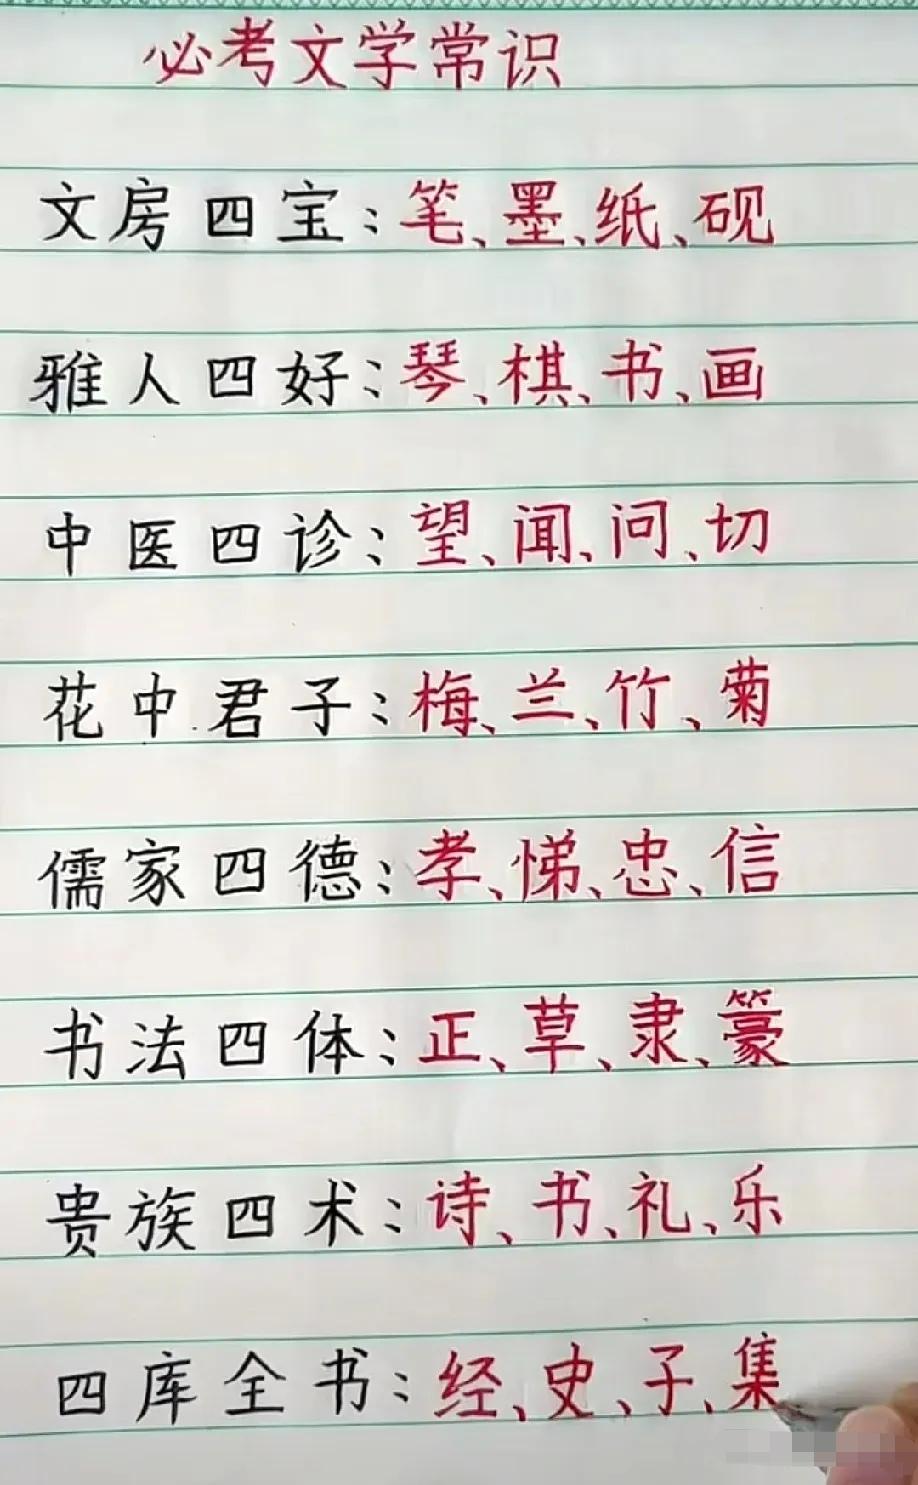 必考文学常识
文房四宝:笔、墨、纸、砚
雅人四好:琴、棋、书、画
中医四诊:望、闻、问、切
花中君子:梅、兰、竹、菊
儒家四德:孝、悌、忠、信
书法四体:正、草、隶、篆
贵族四术:诗、书、礼、乐
四库全书:经、史、子、集